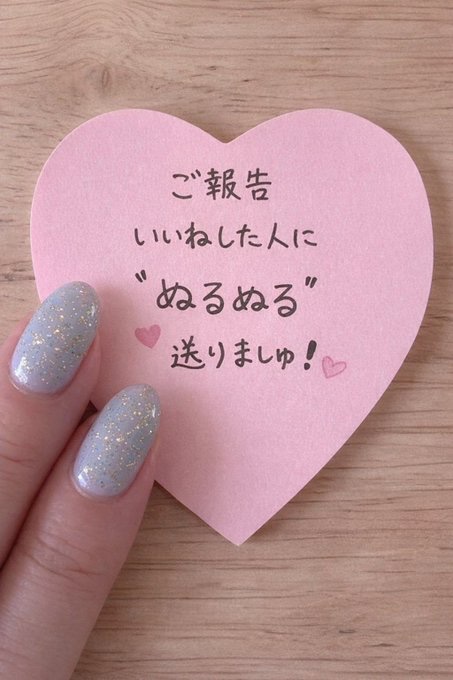 ご報告
いいねした人に
"ぬるぬる"
送りましゅ!